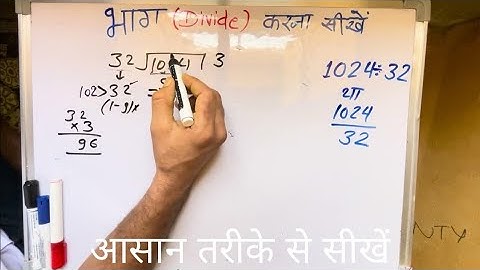 भाग (Divide) करना सीखें
32 √1024 / 3
102>32
(1-9)x
32
x3
96
1024÷32
या
1024
32
आसान तरीके से सीखें